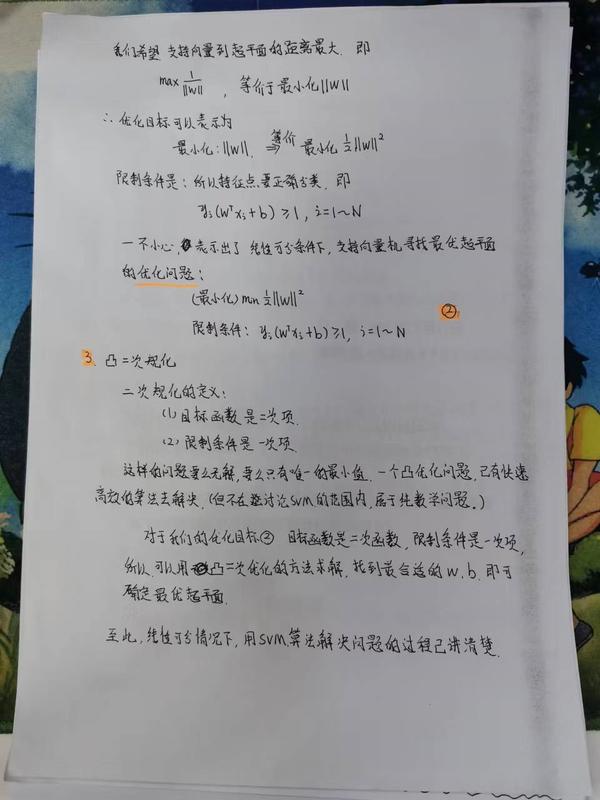 我们希望 支持向量到超平面的距离最大. 即
max 1/||W|| , 等价于最小化||W||
∴ 优化目标可以表示为
最小化:||W||, 等价⇒ 最小化 ½||W||²
限制条件是: 所以特征点要正确分类, 即
yᵢ(wᵀxᵢ+b) ≥ 1, i=1~N
一不小心, 表示出了 线性可分条件下, 支持向量机寻找最优超平面
的优化问题:
(最小化) min ½||W||²
②
限制条件: yᵢ(wᵀxᵢ+b) ≥ 1, i=1~N
3. 凸二次规化
二次规化的定义:
(1) 目标函数是二次项.
(2) 限制条件是一次项.
这样的问题要么无解, 要么只有唯一的最小值. 一个凸优化问题, 已有快速
高效的算法去解决. (但不在讨论SVM的范围内, 属于纯数学问题。)
对于我们的优化目标② 目标函数是二次函数, 限制条件是一次项,
所以, 可以用凸二次优化的方法求解, 找到最合适的 w, b. 即可
确定最优超平面.
至此, 线性可分情况下, 用SVM算法解决问题的过程已讲清楚.